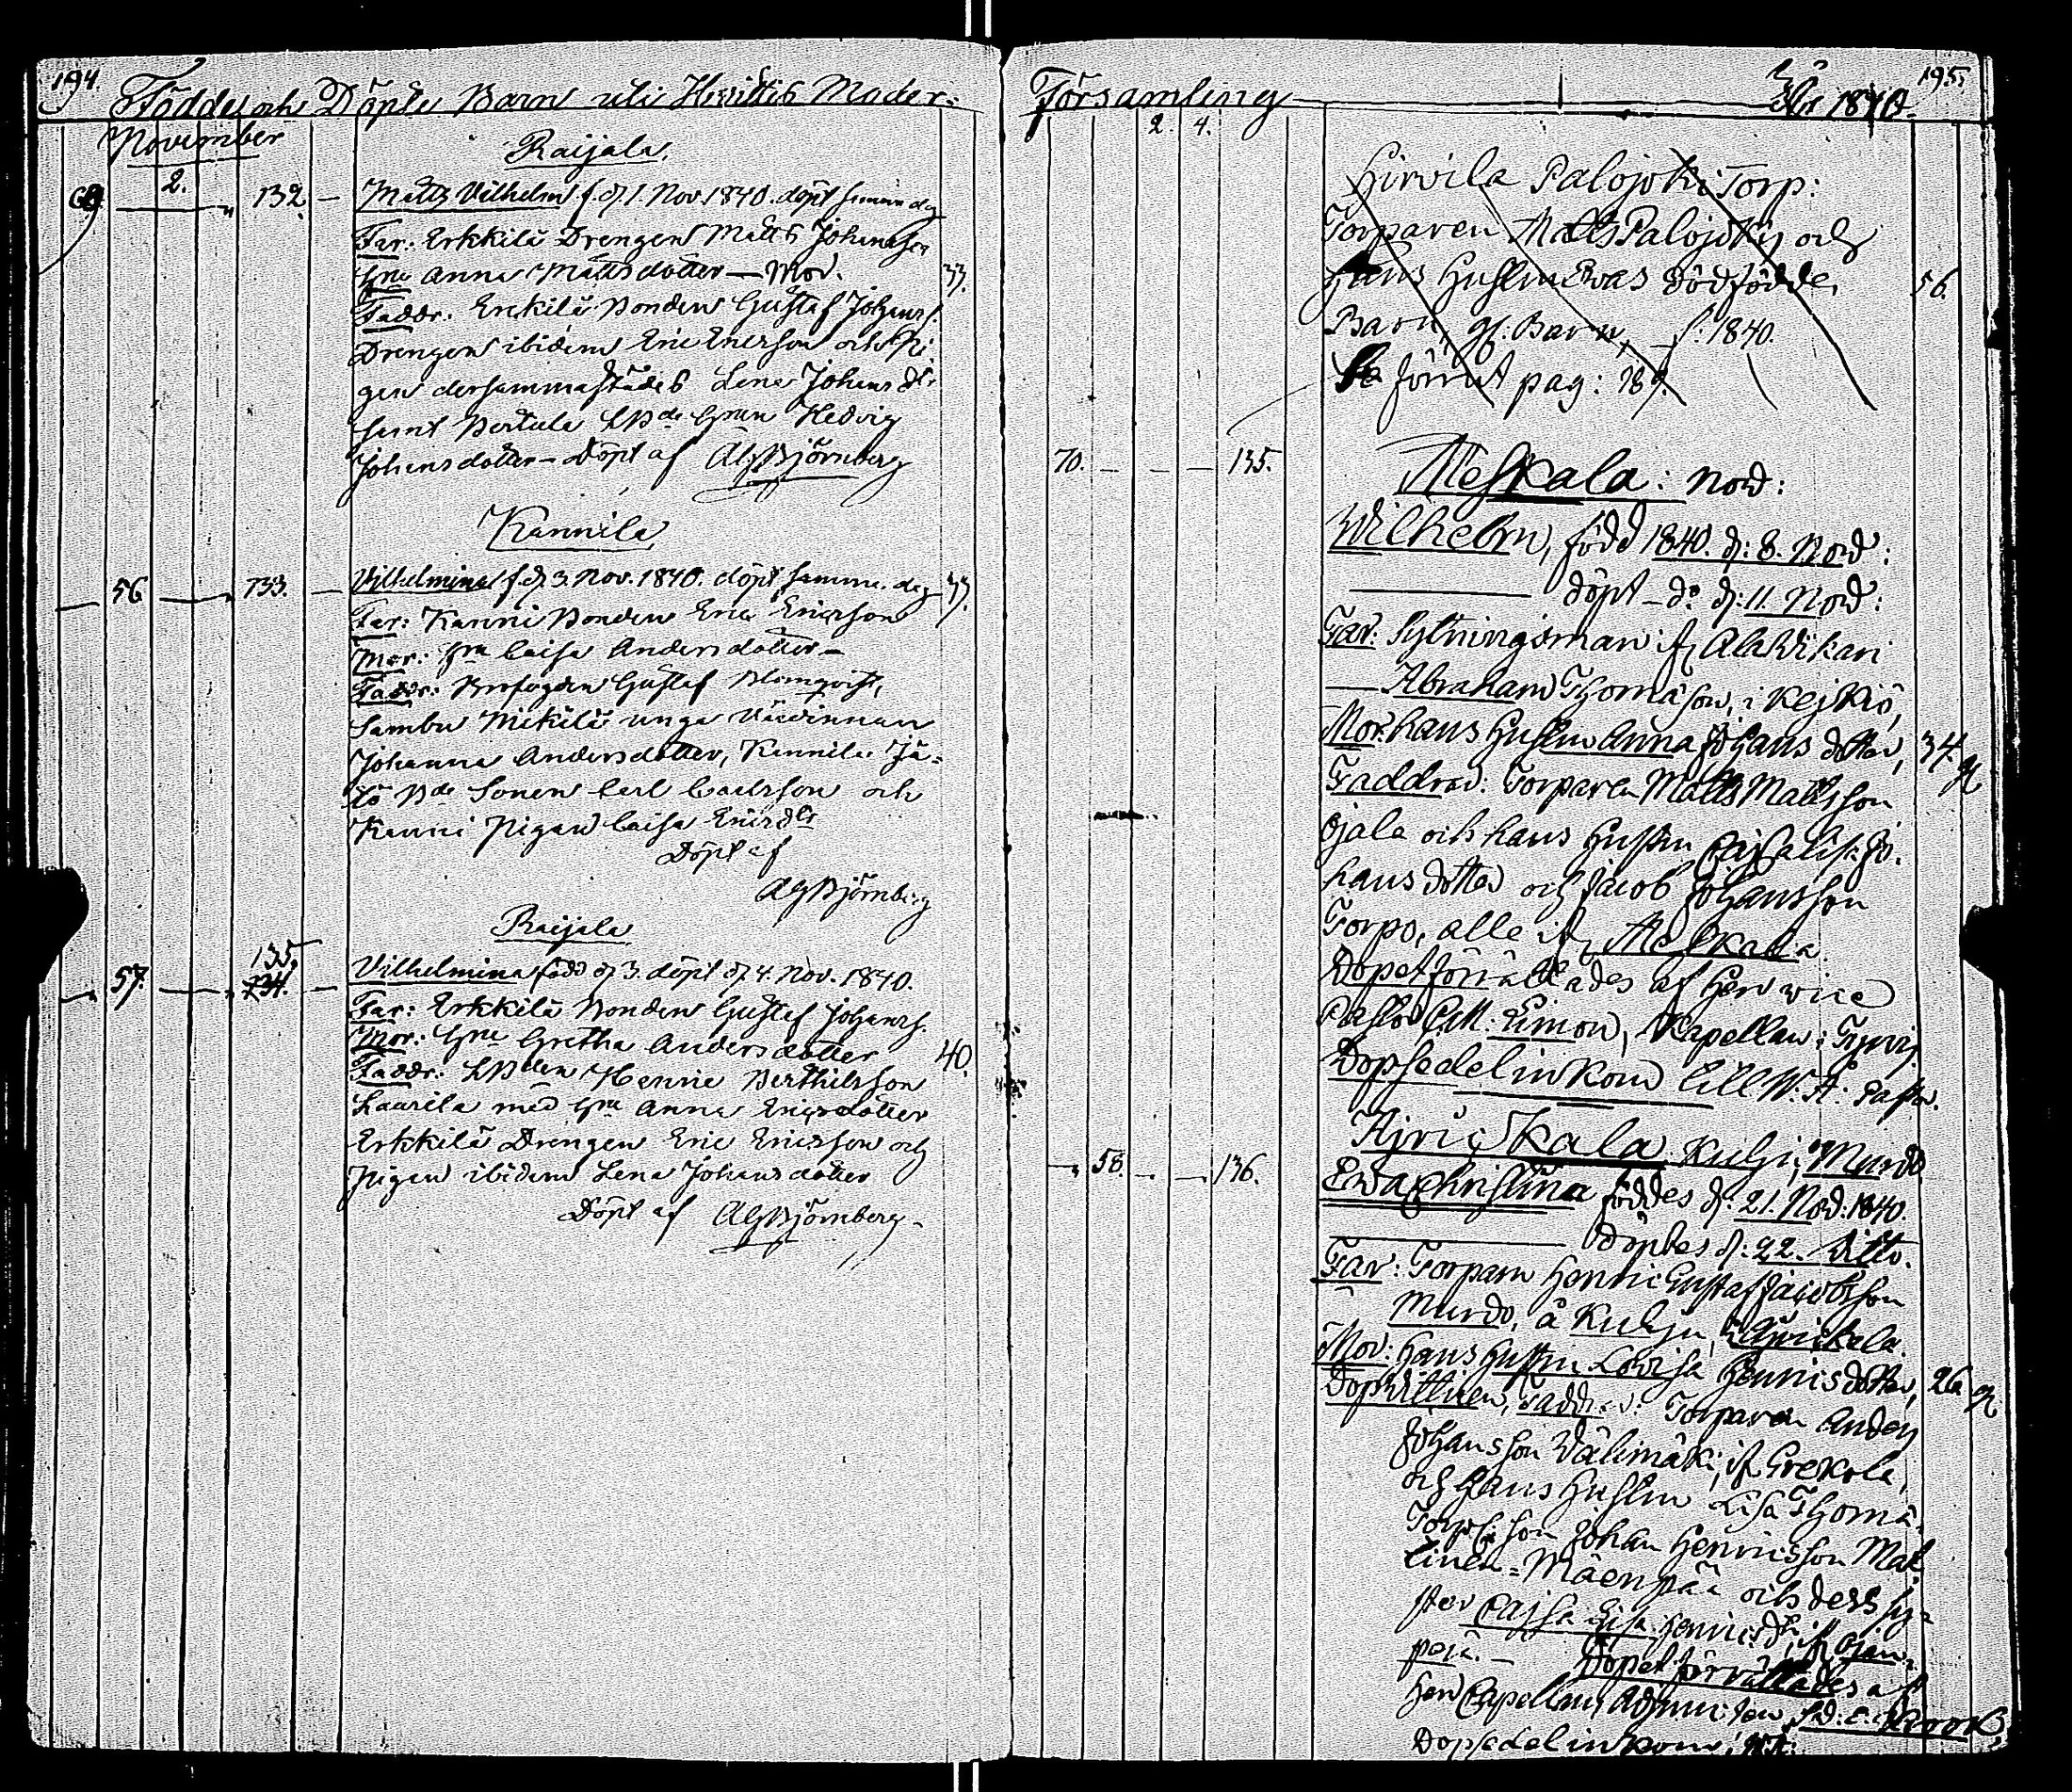 194.
Födde och Döpte Barn uti Huittis Moder-
November
2.
Raijala.
69 132 Matts Vilhelm f. d. 1. Nov. 1840. döpt samma dag
Far: Erkkilä Drengen Matts Johansson
Hru Anna Mattsdotter — Mor. 33.
Faddr: Erkkilä Bonden Gustaf Johanss.
Drengen ibidem Eric Ericson och Pi-
gan dersammastädes Lena Johansdr
samt Pertula Hedvig
Johansdotter - Döpt af AGBjörnberg
Kannila
56 133. Vilhelmina f. d. 3. Nov. 1840. döpt samma dag 33.
Far: Kanni Bonden Eric Ericson
Mor: Hru Caisa Andersdotter -
Faddr: Gustaf Blomqvist,
Sambu Mikkilä unga Värdinnan
Johanna Andersdotter, Kannila
Sonen Carl Carlsson och
Kanni Pigan Caisa Ericsdr
Döpt af
AGBjörnberg
Raijala
135.
57. 134. Vilhelmina född d. 3. döpt d. 4. Nov. 1840.
Far: Erkkilä Bonden Gustaf Johanss.
Mor: Hru Gretha Andersdotter 40.
Faddr: Henric Berthilsson
Laurila med Hru Anna Ericsdotter
Erkkilä Drengen Eric Ericsson och
Pigan ibidem Lena Johansdotter
Döpt af AGBjörnberg -
Församling
År 1840.
195.
2. 4.
Hirvila Palojoki Torp:
Torparen Matts Palojoky och
hans Hustru Evas dödfödde, 56.
Barn, Barn, f. 1840.
Se förut pag: 189.
70. 135. Meskala: Nov:
Wilhelm, född 1840. d: 8. Nov:
döpt - do d: 11. Nov:
Far: Sytningsman ifr. Alawikari
Abraham Thomasson, i Kejkiö,
Mor: hans Hustru Anna Johansdotter, 34
Faddrar: Torparen Matts Mattsson
Ojala och hans Hustru Cajsa Lisa Jo-
hansdotter och Jacob Johansson
Torpo, alle ifr. Meskala.
Dopet förrättades af Herr vice
Pastor C.M: Limon, Kapellan i Tyrvis
Dopsedel inkom till W. Pastor.
Ajrickala Kulju, Murdo.
58. 136. Eva Christina föddes d: 21. Nov: 1840.
döptes d: 22. ditto.
Far: Torparn Henric Gustaf Jacobsson
Murdo, å Kulju, Ajrickala.
Mor: hans Hustru Lovisa Henricsdotter, 26
Dopvittnen, Faddrar: Torparen Anders
Johansson Välimäki, ifr. Grekola,
och hans Hustru Lisa Thomä-
Torp. son Johan Henricsson Mat-
tinen-Mäenpää och dess sy-
ster Cajsa Lisa Henricsdr. ifr. Ojan-
perä. - Dopet förrättades af
Herr Capellans Adjuncten
Dopsedel inkom,